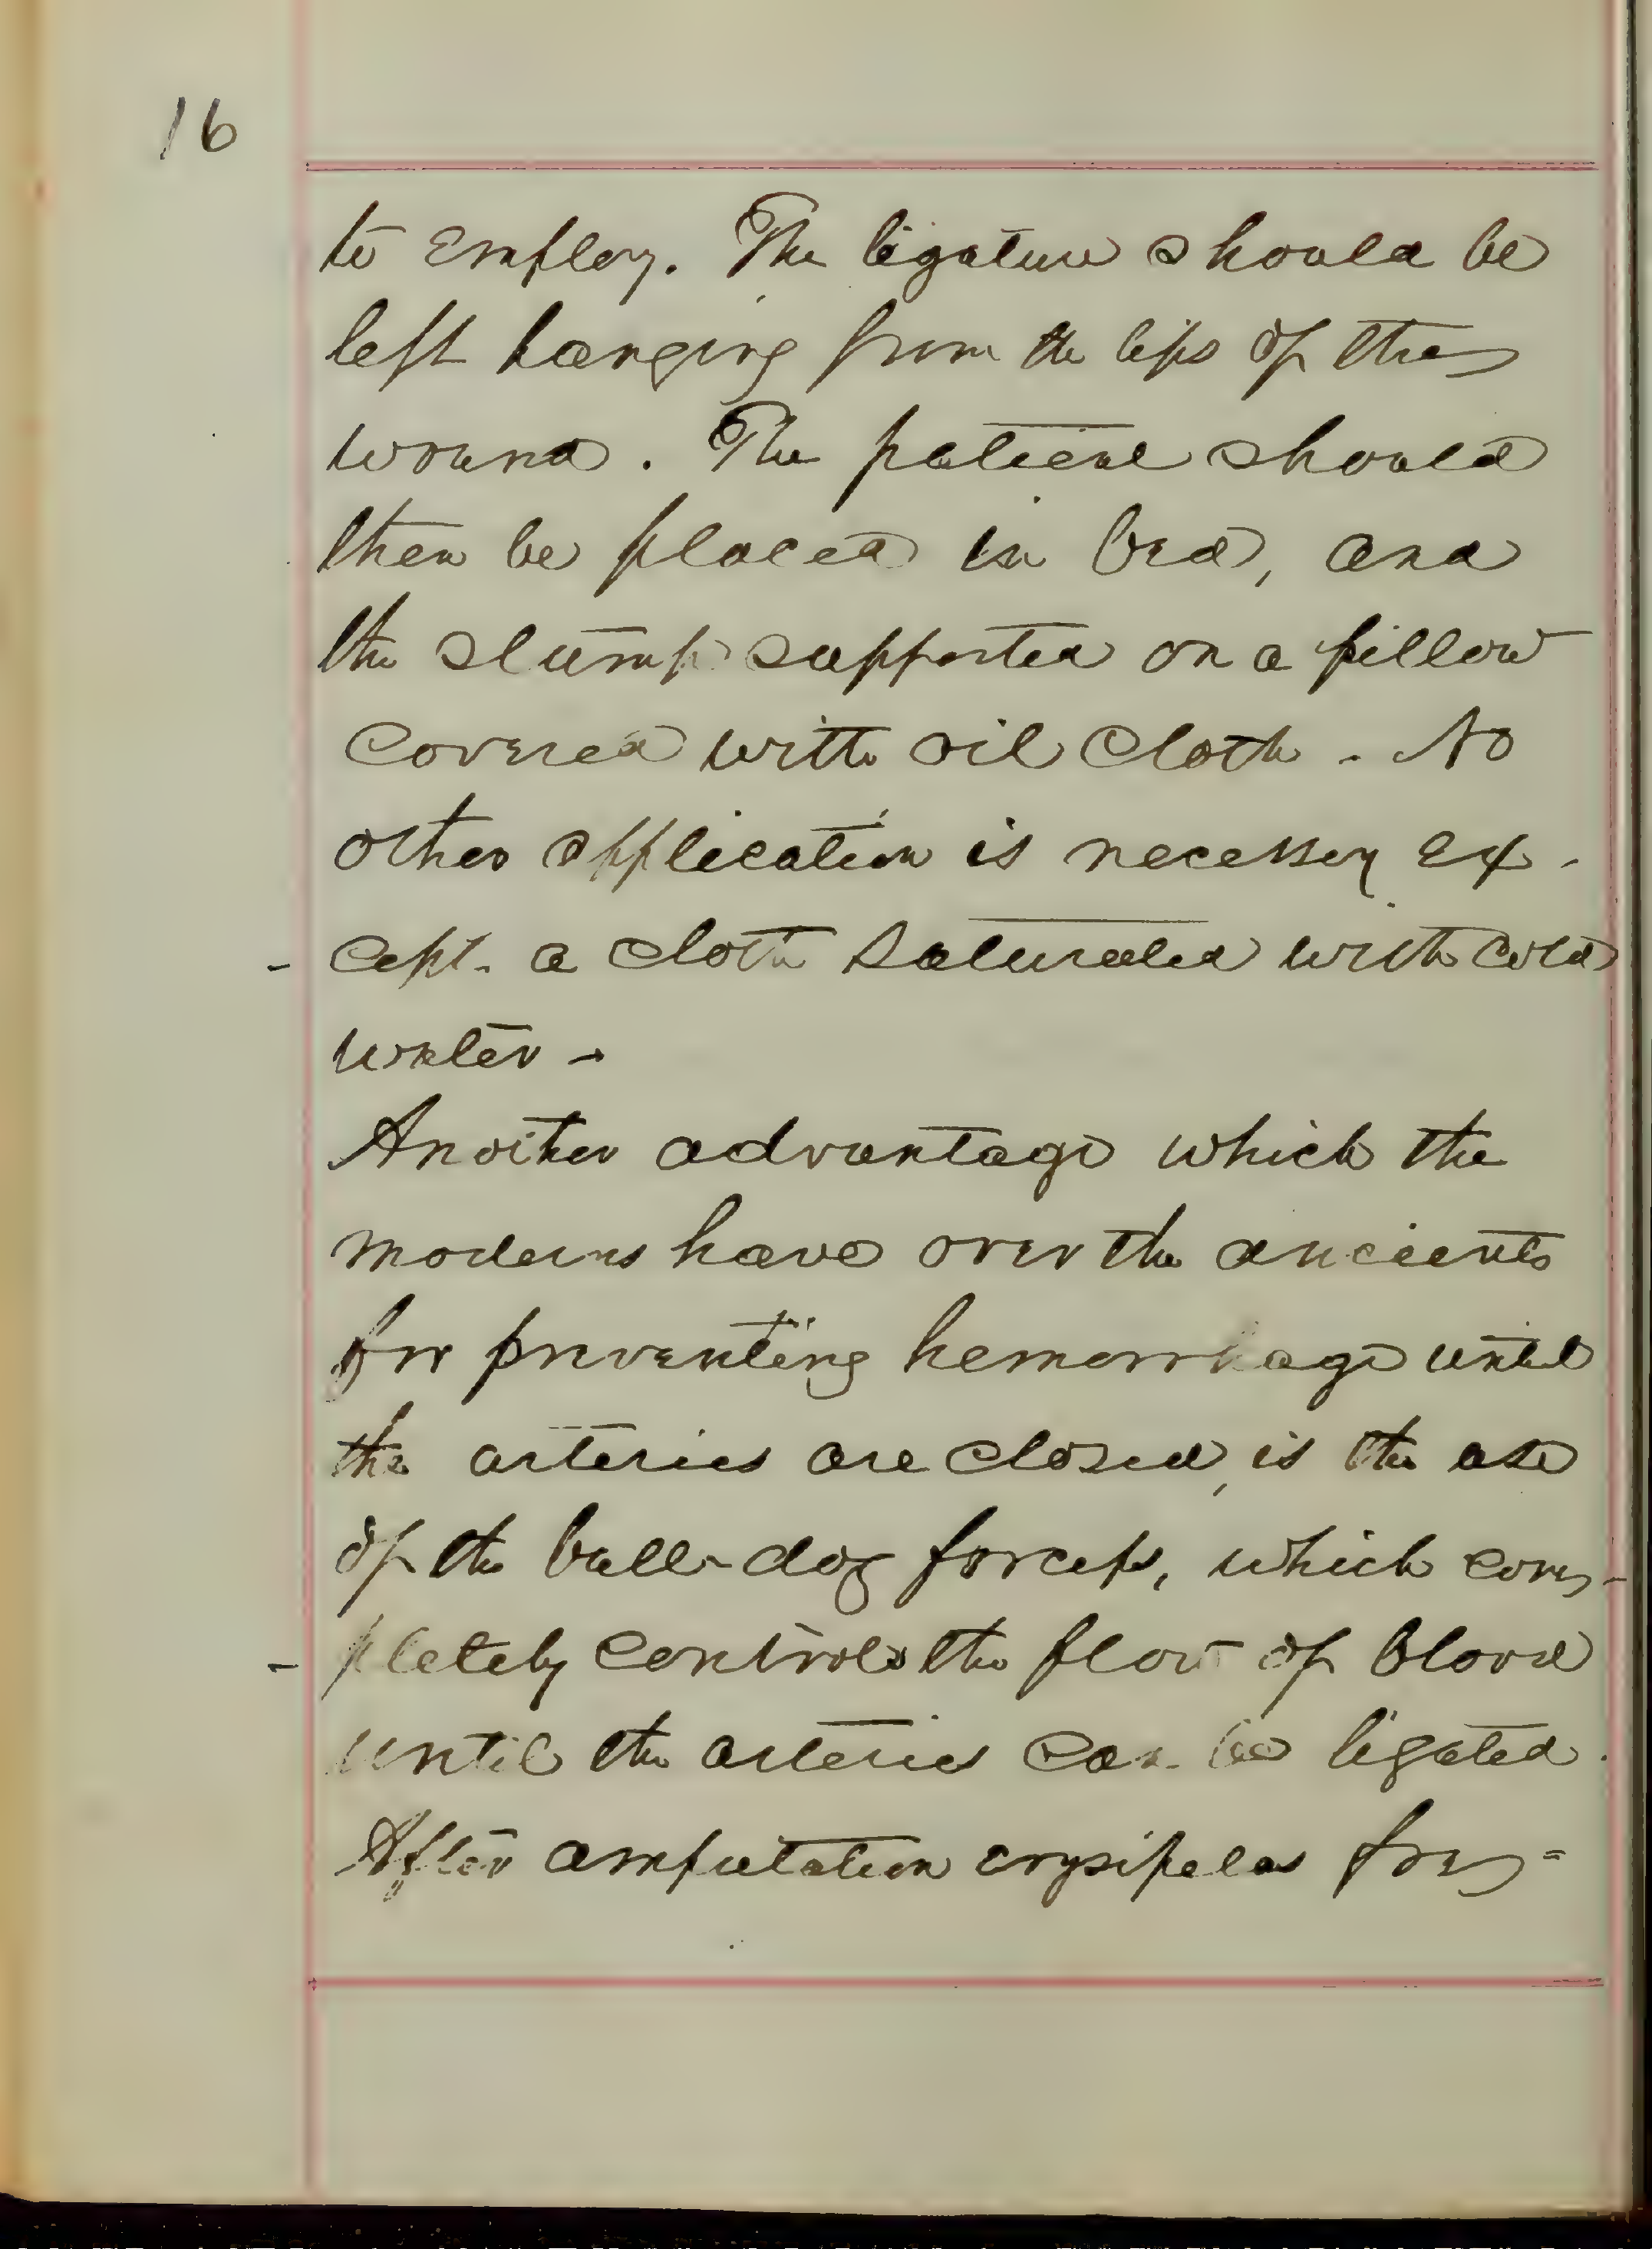 16
to employ. The ligature should be
left hanging from the lips of the
wound. The patient should
then be placed in bed, and
the stump supported on a pillow
covered with oil cloth. No
other application is necessary ex-
- cept. a cloth saturated with cold
water -
Another advantage which the
moderns have over the ancients
for preventing hemorrhage until
the arteries are closed, is the use
of the bull-dog forceps, which com-
- pletely controls the flow of blood
until the arteries can be ligated.
After amputation erysipelas fre=